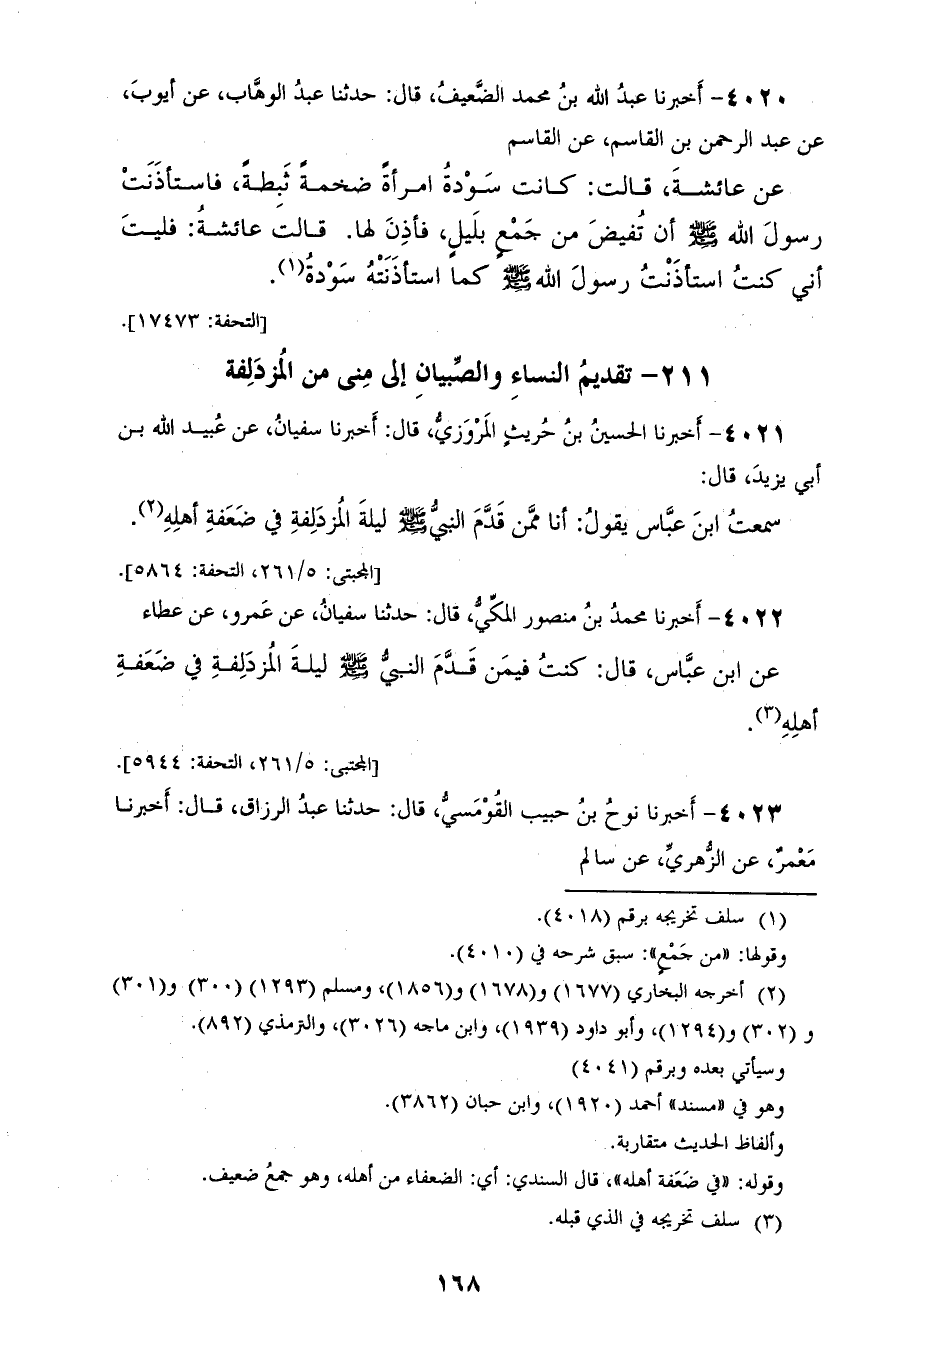 ٤٠٢٠- أَخبرنا عبدُ الله بنُ محمد الضَّعيفُ، قال: حدثنا عبدُ الوهَّاب، عن أيوبَ،
عن عبد الرحمن بن القاسم، عن القاسم
عن عائشةَ، قالت: كانت سَوْدةُ امرأةً ضخمةً ثَبِطةً، فاستأذَنَتْ
رسولَ الله ﷺ أن تُفيضَ من جَمْعٍ بلَيلٍ، فأذِنَ لها. قالت عائشةُ: فليتَ
أني كنتُ استأذَنْتُ رسولَ الله ﷺ كما استأذَنَتْهُ سَوْدةُ(١).
[التحفة: ١٧٤٧٣].
٢١١- تقديمُ النساءِ والصِّبيانِ إلى مِنى من المُزدَلِفة
٤٠٢١- أَخبرنا الحسينُ بنُ حُريثٍ المَرْوَزيُّ، قال: أَخبرنا سفيانُ، عن عُبيد الله بن
أبي يزيدَ، قال:
سمعتُ ابنَ عبَّاس يقولُ: أنا ممَّن قَدَّمَ النبيُّ ﷺ ليلةَ المُزدَلِفةِ في ضَعَفةِ أهلِهِ(٢).
[المجتبى: ٢٦١/٥، التحفة: ٥٨٦٤].
٤٠٢٢- أَخبرنا محمدُ بنُ منصور المكيُّ، قال: حدثنا سفيانُ، عن عَمرو، عن عطاء
عن ابن عبَّاس، قال: كنتُ فيمَن قَدَّمَ النبيُّ ﷺ ليلةَ المُزدَلِفةِ في ضَعَفةِ
أهلِهِ(٣).
[المجتبى: ٢٦١/٥، التحفة: ٥٩٤٤].
٤٠٢٣- أَخبرنا نوحُ بنُ حبيب القُوْمَسيُّ، قال: حدثنا عبدُ الرزاق، قال: أَخبرنا
مَعْمرٌ، عن الزُّهريِّ، عن سالم
(١) سلف تخريجه برقم (٤٠١٨).
وقولها: «من جَمْعٍ»: سبق شرحه في (٤٠١٠).
(٢) أخرجه البخاري (١٦٧٧) و(١٦٧٨) و(١٨٥٦)، ومسلم (١٢٩٣) (٣٠٠) و(٣٠١)
و (٣٠٢) و(١٢٩٤)، وأبو داود (١٩٣٩)، وابن ماجه (٣٠٢٦)، والترمذي (٨٩٢).
وسيأتي بعده وبرقم (٤٠٤١)
وهو في «مسند» أحمد (١٩٢٠)، وابن حبان (٣٨٦٢).
وألفاظ الحديث متقاربة.
وقوله: «في ضَعَفة أهله»، قال السندي: أي: الضعفاء من أهله، وهو جمعُ ضعيف.
(٣) سلف تخريجه في الذي قبله.
١٦٨